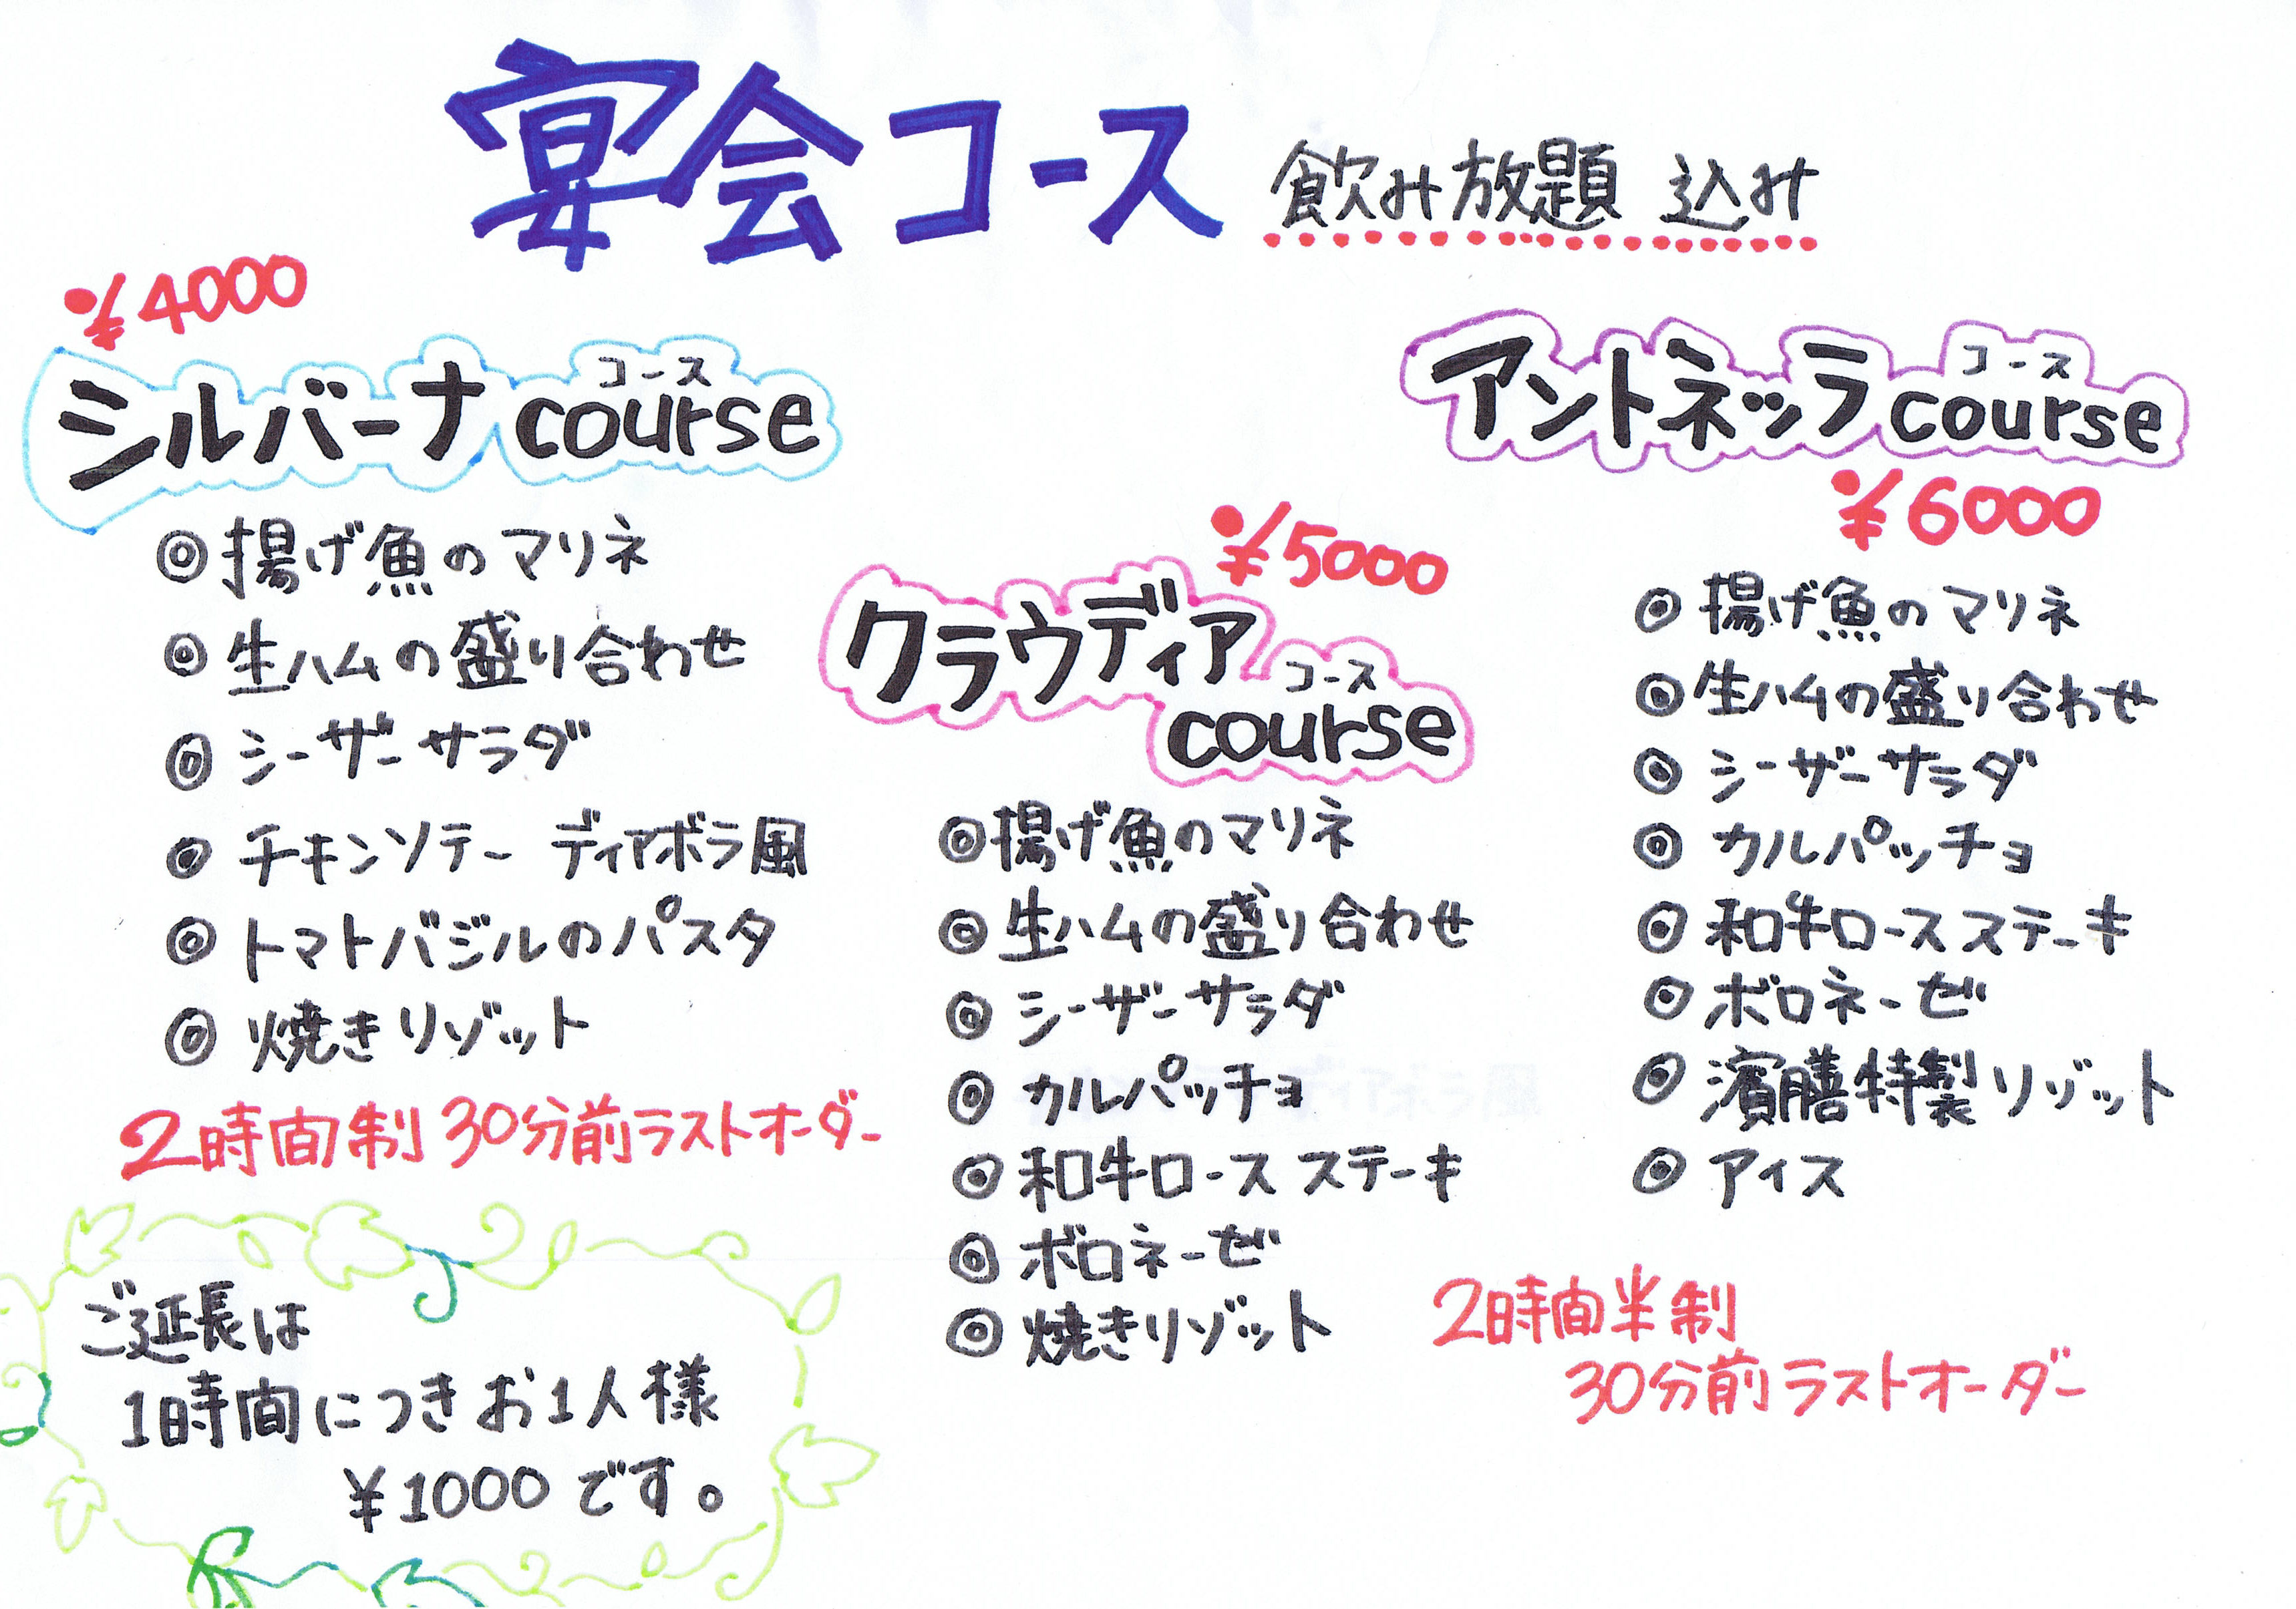 宴会コース 飲み放題 込み
¥4000
シルバーナ course
コース
◎揚げ魚のマリネ
◎生ハムの盛り合わせ
◎シーザーサラダ
◎チキンソテー ディアボラ風
◎トマトバジルのパスタ
◎焼きリゾット
2時間制 30分前ラストオーダー
ご延長は
1時間につきお1人様
¥1000です。
¥5000
クラウディア
コース
course
◎揚げ魚のマリネ
◎生ハムの盛り合わせ
◎シーザーサラダ
◎カルパッチョ
◎和牛ロース ステーキ
◎ボロネーゼ
◎焼きリゾット
アントネッラ course
コース
¥6000
◎揚げ魚のマリネ
◎生ハムの盛り合わせ
◎シーザーサラダ
◎カルパッチョ
◎和牛ロースステーキ
◎ボロネーゼ
◎濱膳特製リゾット
◎アイス
2時間半制
30分前ラストオーダー